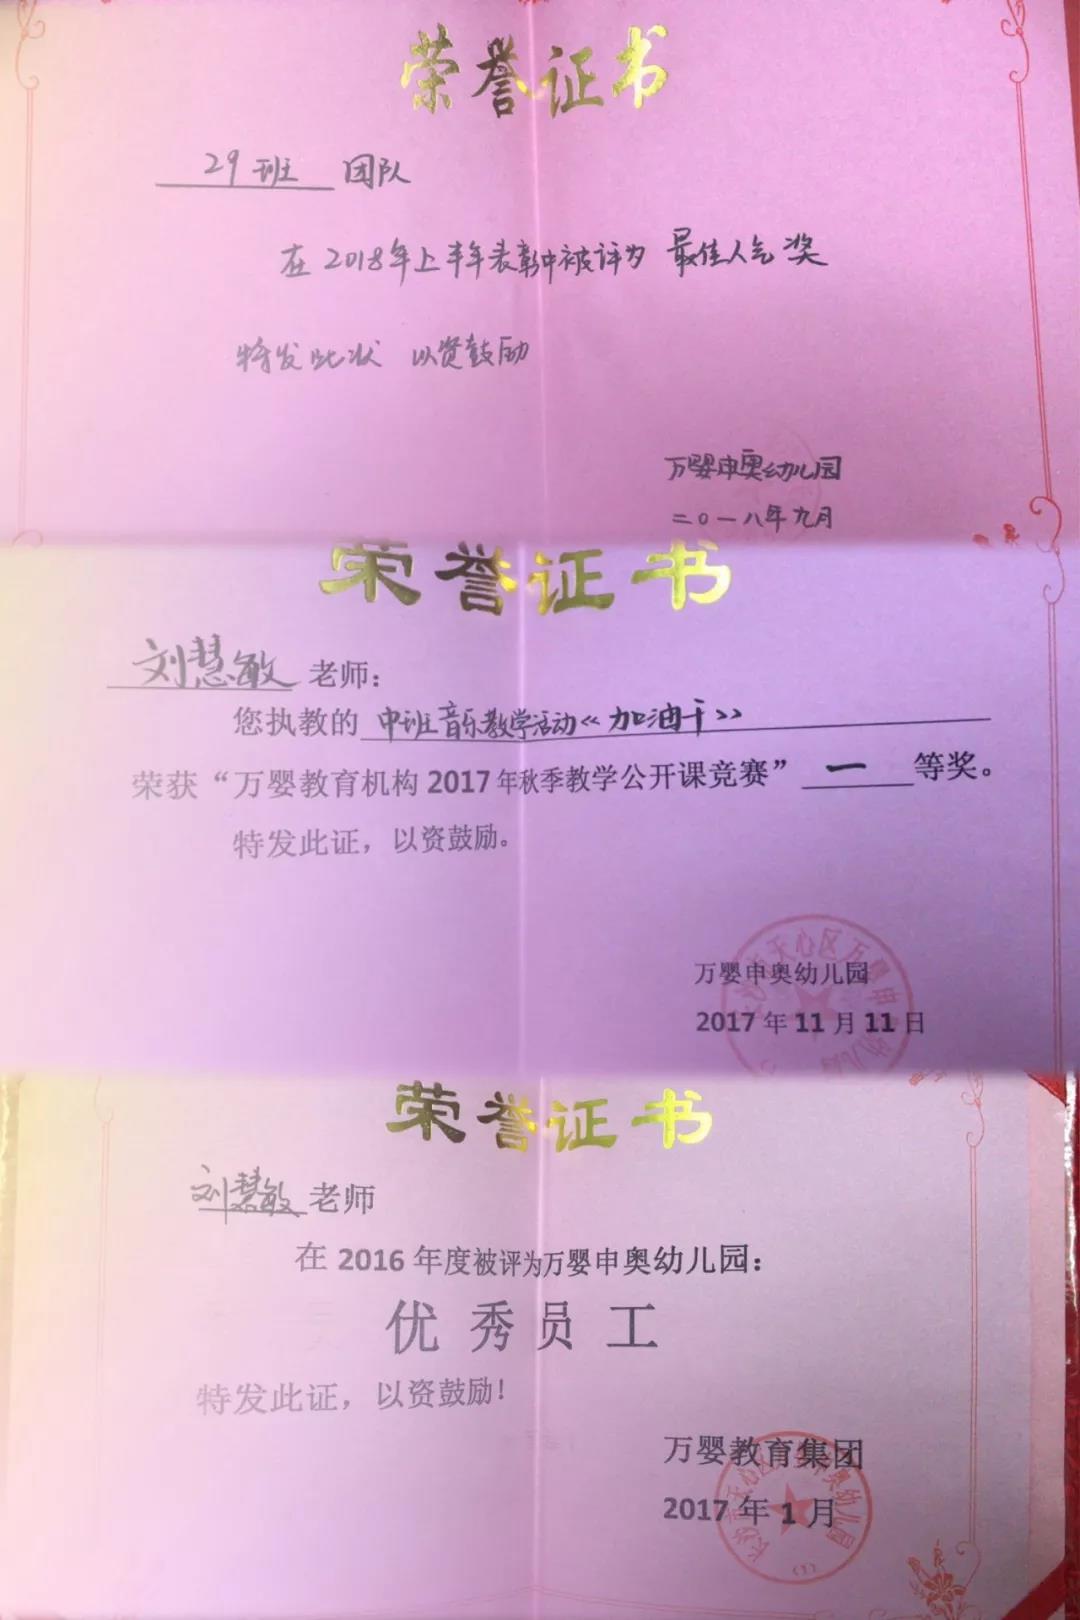 荣誉证书
29班 团队
在2018年上半年表彰中被评为 最佳人气奖
特发此状 以资鼓励
万婴申奥幼儿园
二〇一八年九月
荣誉证书
刘慧敏 老师：
您执教的 中班音乐教学活动《加油干》
荣获“万婴教育机构2017年秋季教学公开课竞赛” 一 等奖。
特发此证，以资鼓励。
万婴申奥幼儿园
2017年11月11日
荣誉证书
刘慧敏老师
在2016年度被评为万婴申奥幼儿园：
优秀员工
特发此证，以资鼓励！
万婴教育集团
2017年1月